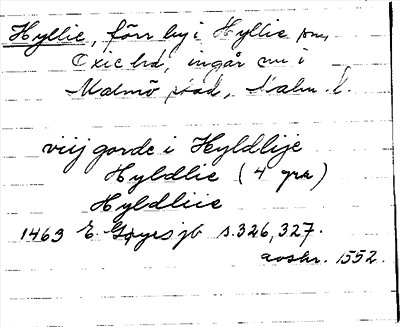 Hyllie, förr by i Hyllie sn,
Oxie hd, ingår nu i
Malmö stad, Malm. l.
viij garde i Hyldlije
Hyldlie (4 gra)
Hyldliie
1463 E. Gøyes jb s.326, 327.
avskr. 1552.